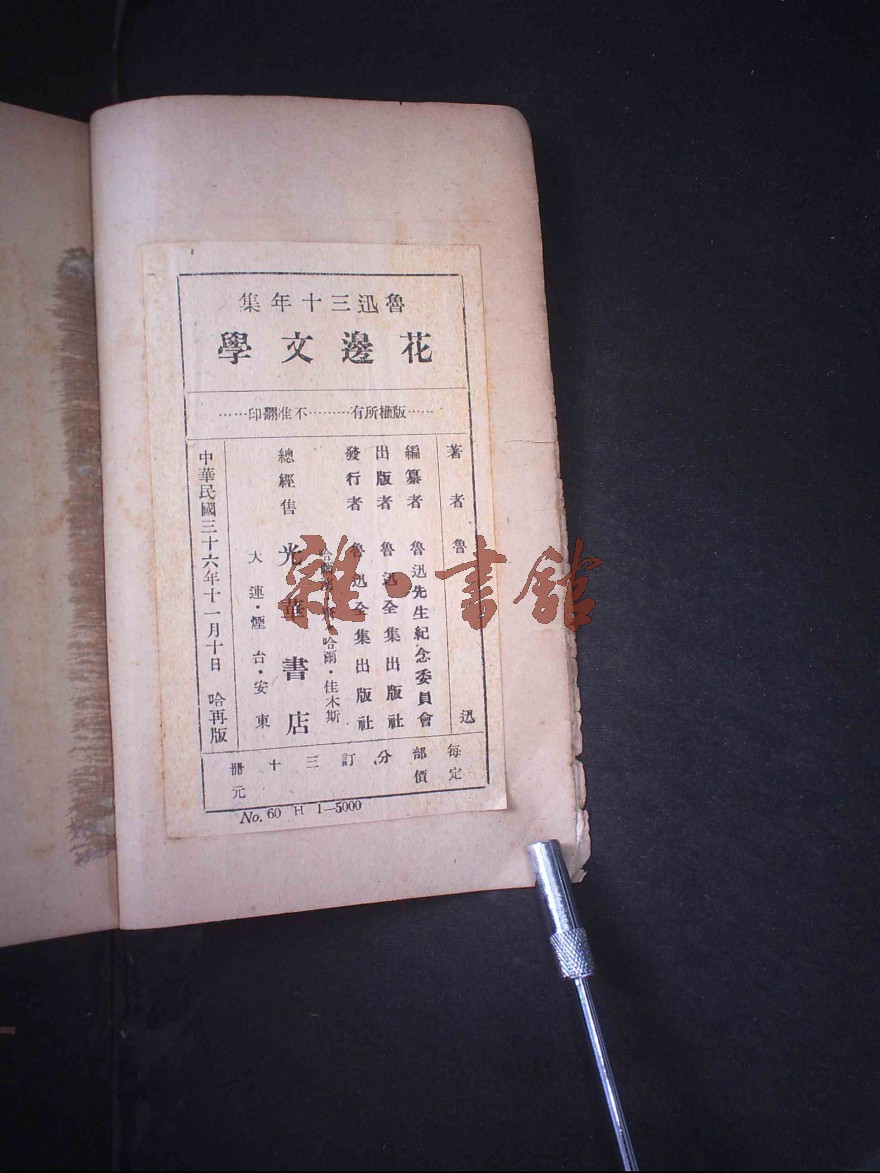 魯迅三十年集
花邊文學
……版權所有………不准翻印……
著者 魯迅
編纂者 魯迅先生紀念委員會
出版者 魯迅全集出版社
發行者 魯迅全集出版社
哈爾・佳木斯
總經售 光華書店
大連・煙台・安東
中華民國三十六年十一月十日 哈再版
每部分訂三十冊
定價 元
No. 60 H 1—5000
雜・書館